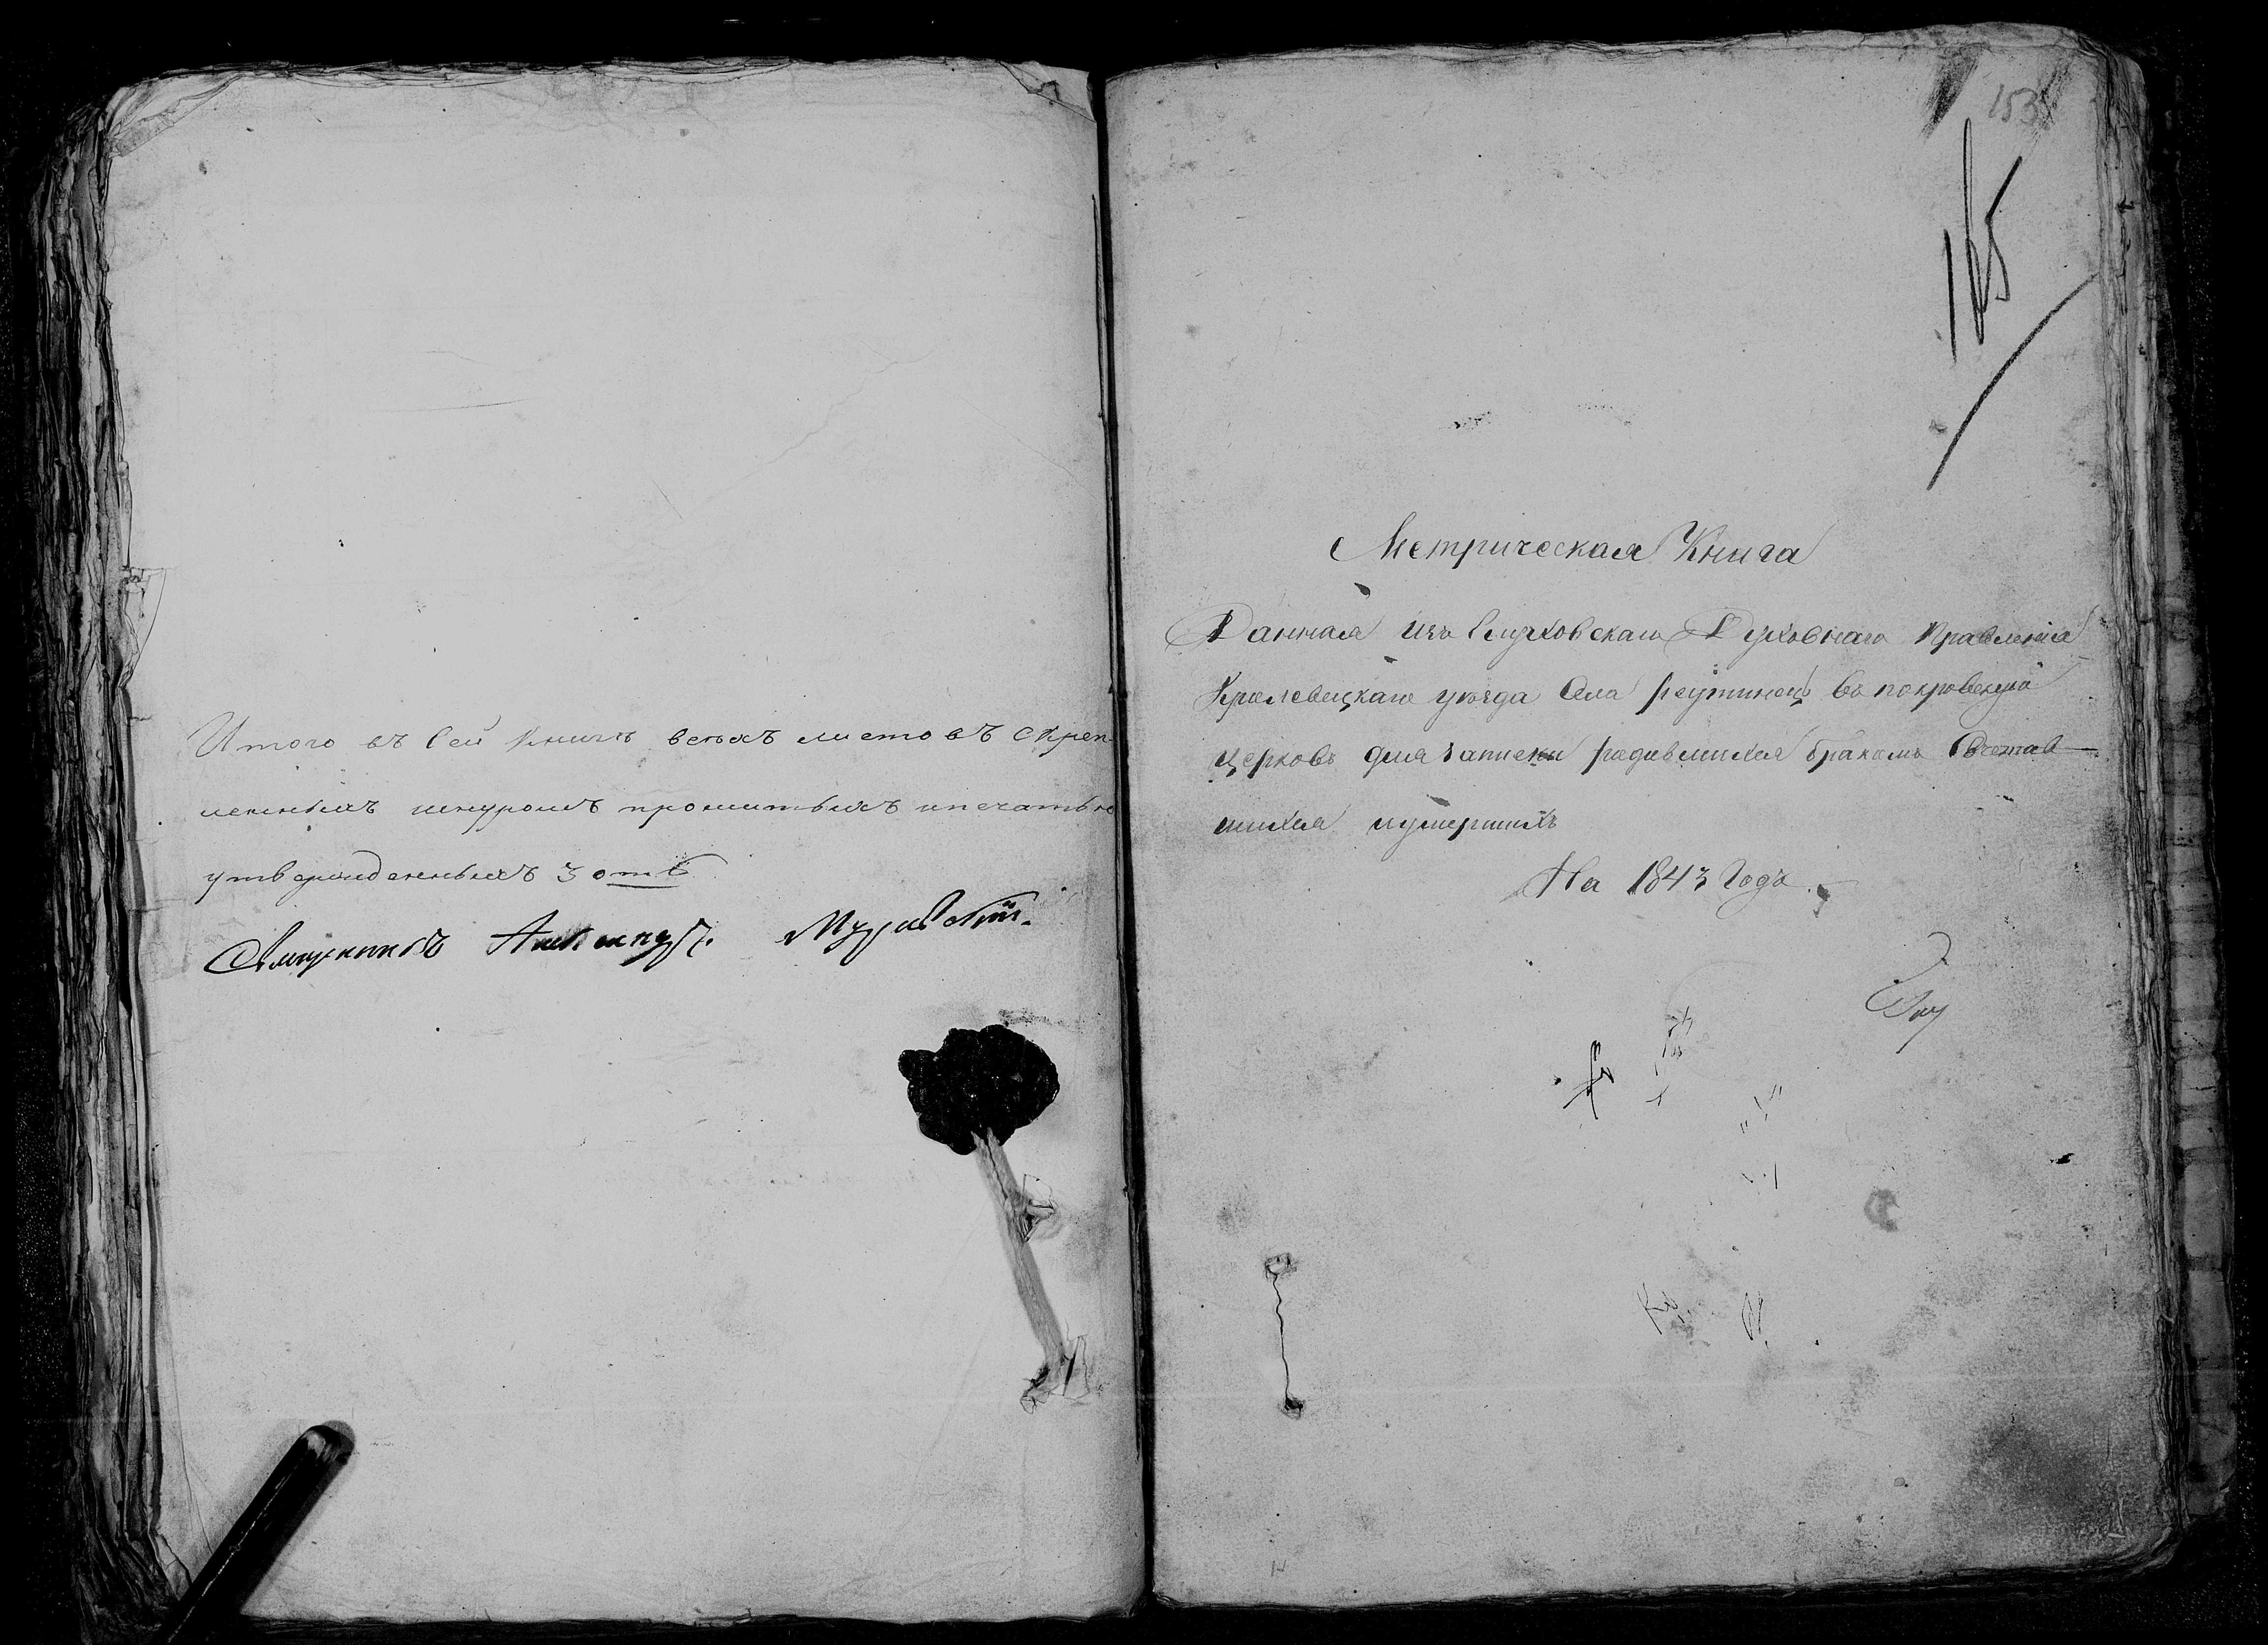 Итого въ Сей Книгѣ всѣхъ листовъ скреп-
ленныхъ шнуромъ прошитыхъ ипечатью
утвержденныхъ
153
165
Метрическая Книга
Данная изъ Глуховскаго Духовнаго Правленія
Кролевецкаго уѣзда Села реутинецъ въ покровскую
церковь для записки родившихся бракомъ Сочетав-
шихся иумершихъ
На 1843 Годъ.